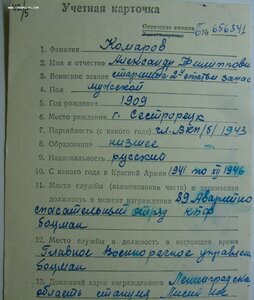 Учетная карточка
Орденская книжка
Удостоверение Б№ 656541
1. Фамилия Комаров
2. Имя и отчество Александр Филиппович
3. Воинское звание старшина 2ой статьи запас
4. Пол мужской
5. Год рождения 1909
6. Место рождения г. Сестрорецк
7. Партийность (с какого года) чл. ВКП/б/ 1943
8. Образование низшее
9. Национальность русский
10. С какого года в Красной Армии 1941 по XII 1946
11. Место службы (наименование части) и занимаемая
должность в момент награждения 89 Аварийно
спасательный отряд КБФ
боцман
12. Место службы и должность в настоящее время
Главное Военноречное управлен
боцман
13. Домашний адрес награжденного Ленинградска
область станция Лисий Нос